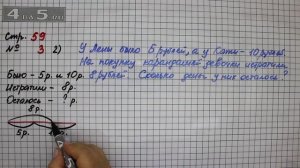 4 5
Стр. 59
№ 3 2)
У Лены было 5 рублей, а у Кати - 10 рублей.
На покупку карандашей девочки истратили
8 рублей. Сколько денег у них осталось?
Было - 5р. и 10р.
Истратили - 8р.
Осталось - ? р.
5р.